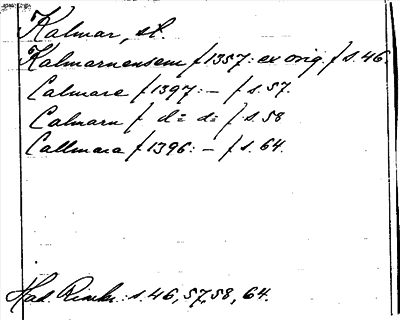 Kalmar, st.
Kalmarnensem / 1357: ex orig. / s. 46
Calmare / 1397: — / s. 57.
Calmarn / d:o d:o / s. 58
Callmara / 1396: — / s. 64.
Had. Rimkr.: s. 46, 57, 58, 64.